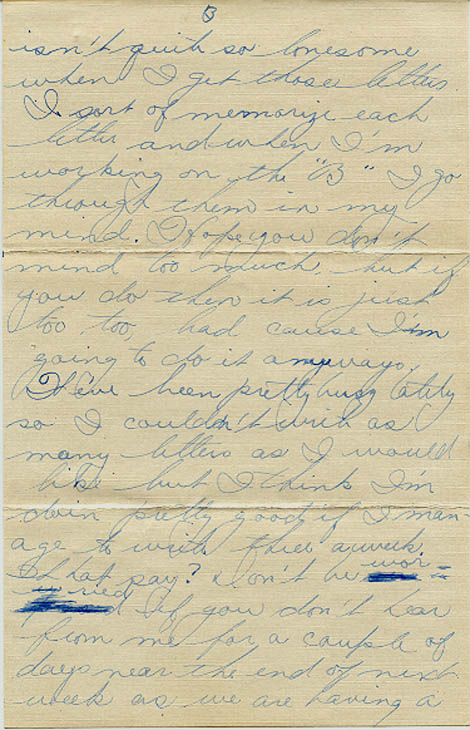 3
isn't quite so lonesome
when I get those letters.
I sort of memorize each
letter and when I'm
working on the "B" I go
through them in my
mind. I hope you don't
mind too much, but if
you do then it is just
too too, bad cause I'm
going to do it anyways.
I've been pretty busy lately
so I couldn't write as
many letters as I would
like but I think I'm
doin pretty good if I man-
age to write three a week.
What say? Don't be wor-
ried if you don't hear
from me for a couple of
days near the end of next
week as we are having a